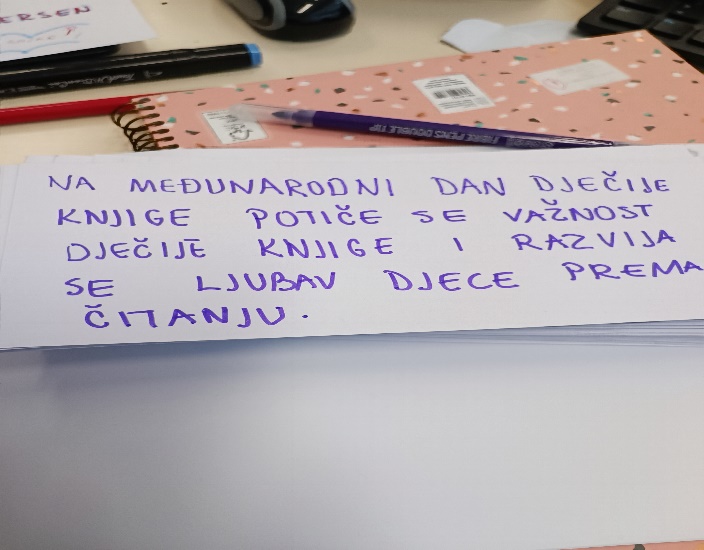 ERSEN
NA MEĐUNARODNI DAN DJEČIJE
KNJIGE POTIČE SE VAŽNOST
DJEČIJE KNJIGE I RAZVIJA
SE LJUBAV DJECE PREMA
ČITANJU.